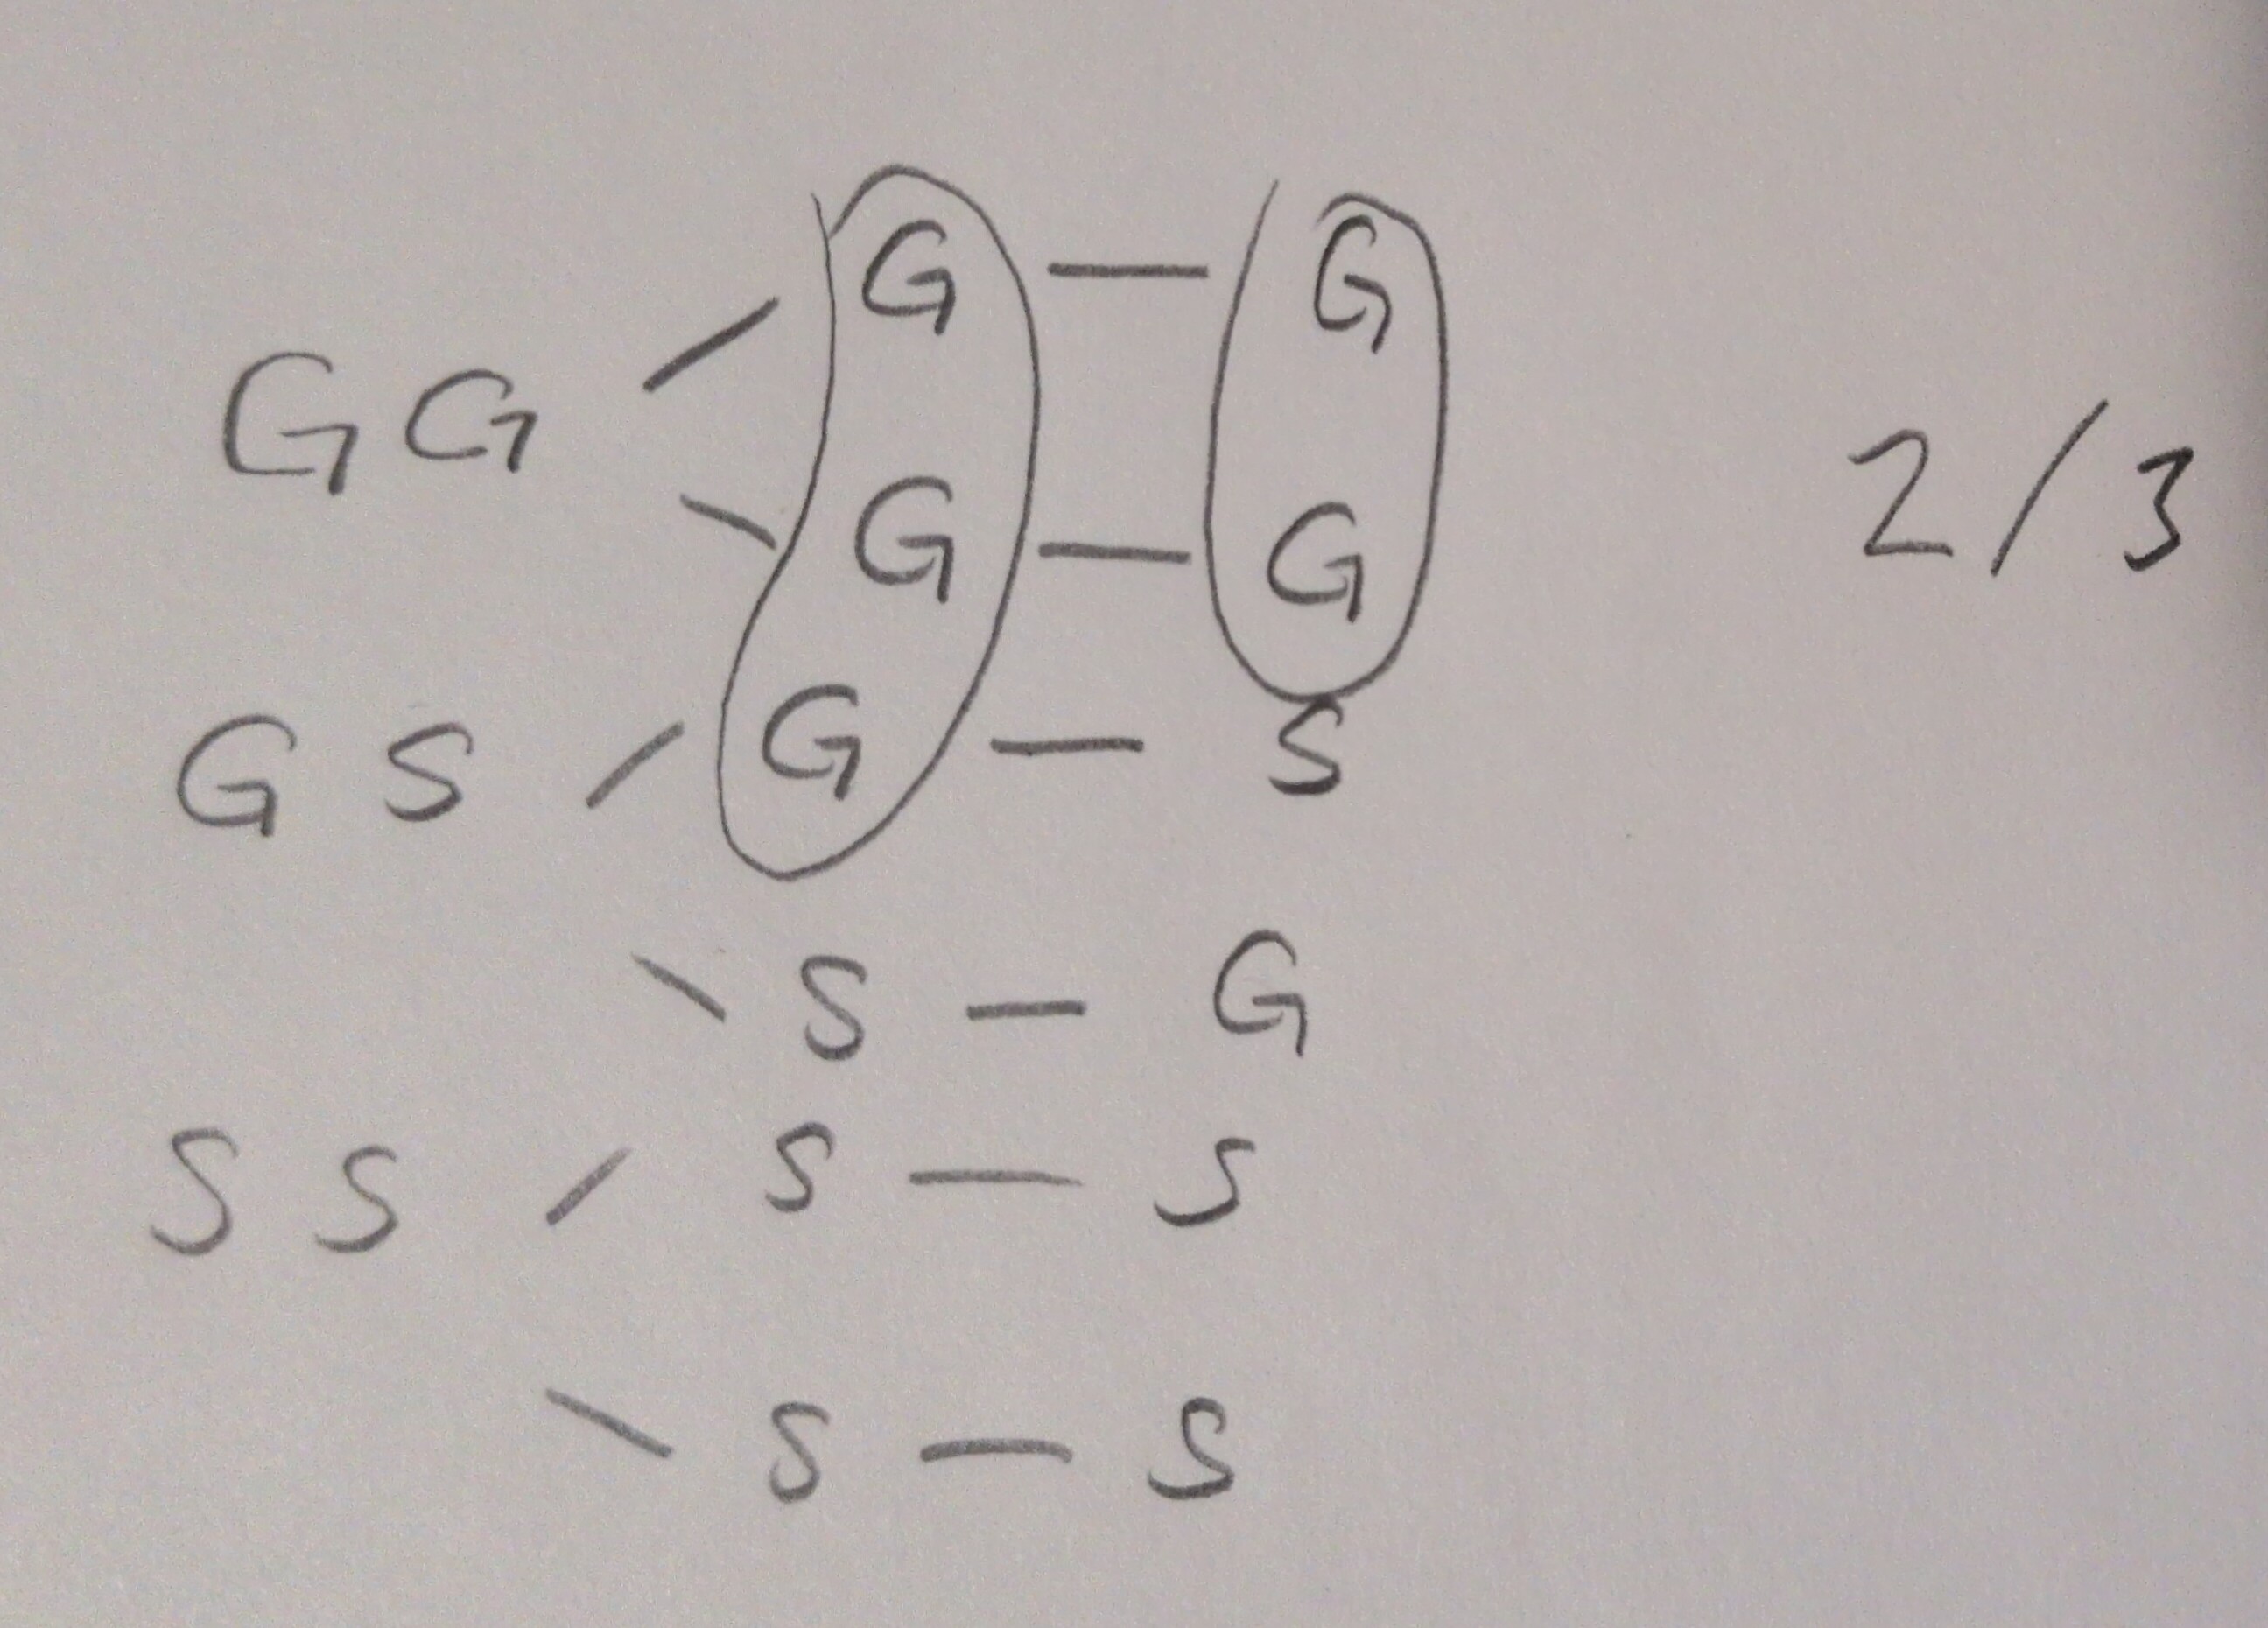 G — G
G G 2/3
G — G
G S G — S
S — G
S S S — S
S — S